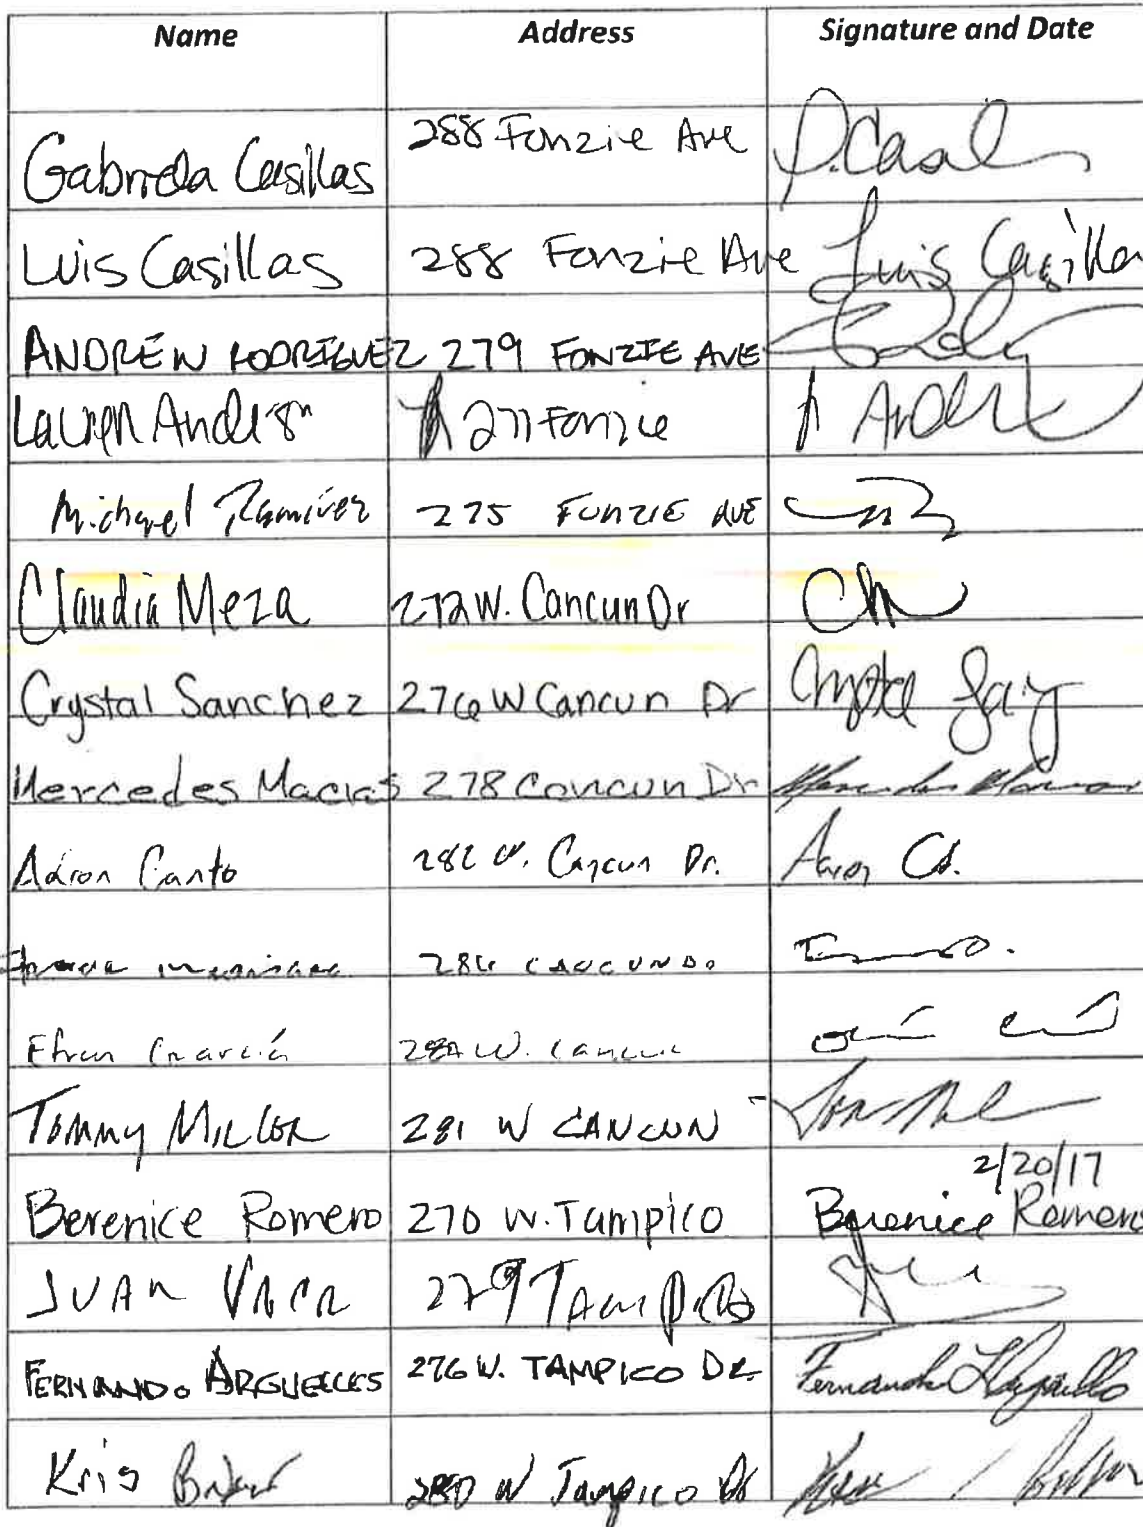 Name Address Signature and Date
Gabriela Casillas 288 Fonzie Ave
Luis Casillas 288 Fonzie Ave Luis Casillas
ANDREW RODRIGUEZ 279 FONZIE AVE
Lauren Anderson 271 Fonzie
Michael Ramirez 275 FONZIE AVE
Claudia Meza 272 W. Cancun Dr
Crystal Sanchez 276 W Cancun Dr
Mercedes Macias 278 Cancun Dr
Aaron Canto 282 W. Cancun Dr.
Efren García W. Cancun
TOMMY MILLER 281 W CANCUN
2/20/17
Berenice Romero 270 W. Tampico Berenice Romero
JUAN VACA 279 TAMPICO
FERNANDO ARGUELLES 276 W. TAMPICO DR.
Kris 280 W Tampico Dr